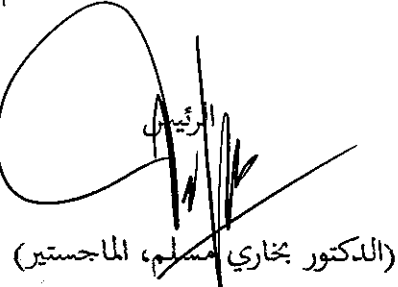 الرئيس
(الدكتور بخاري مسلم، الماجستير)